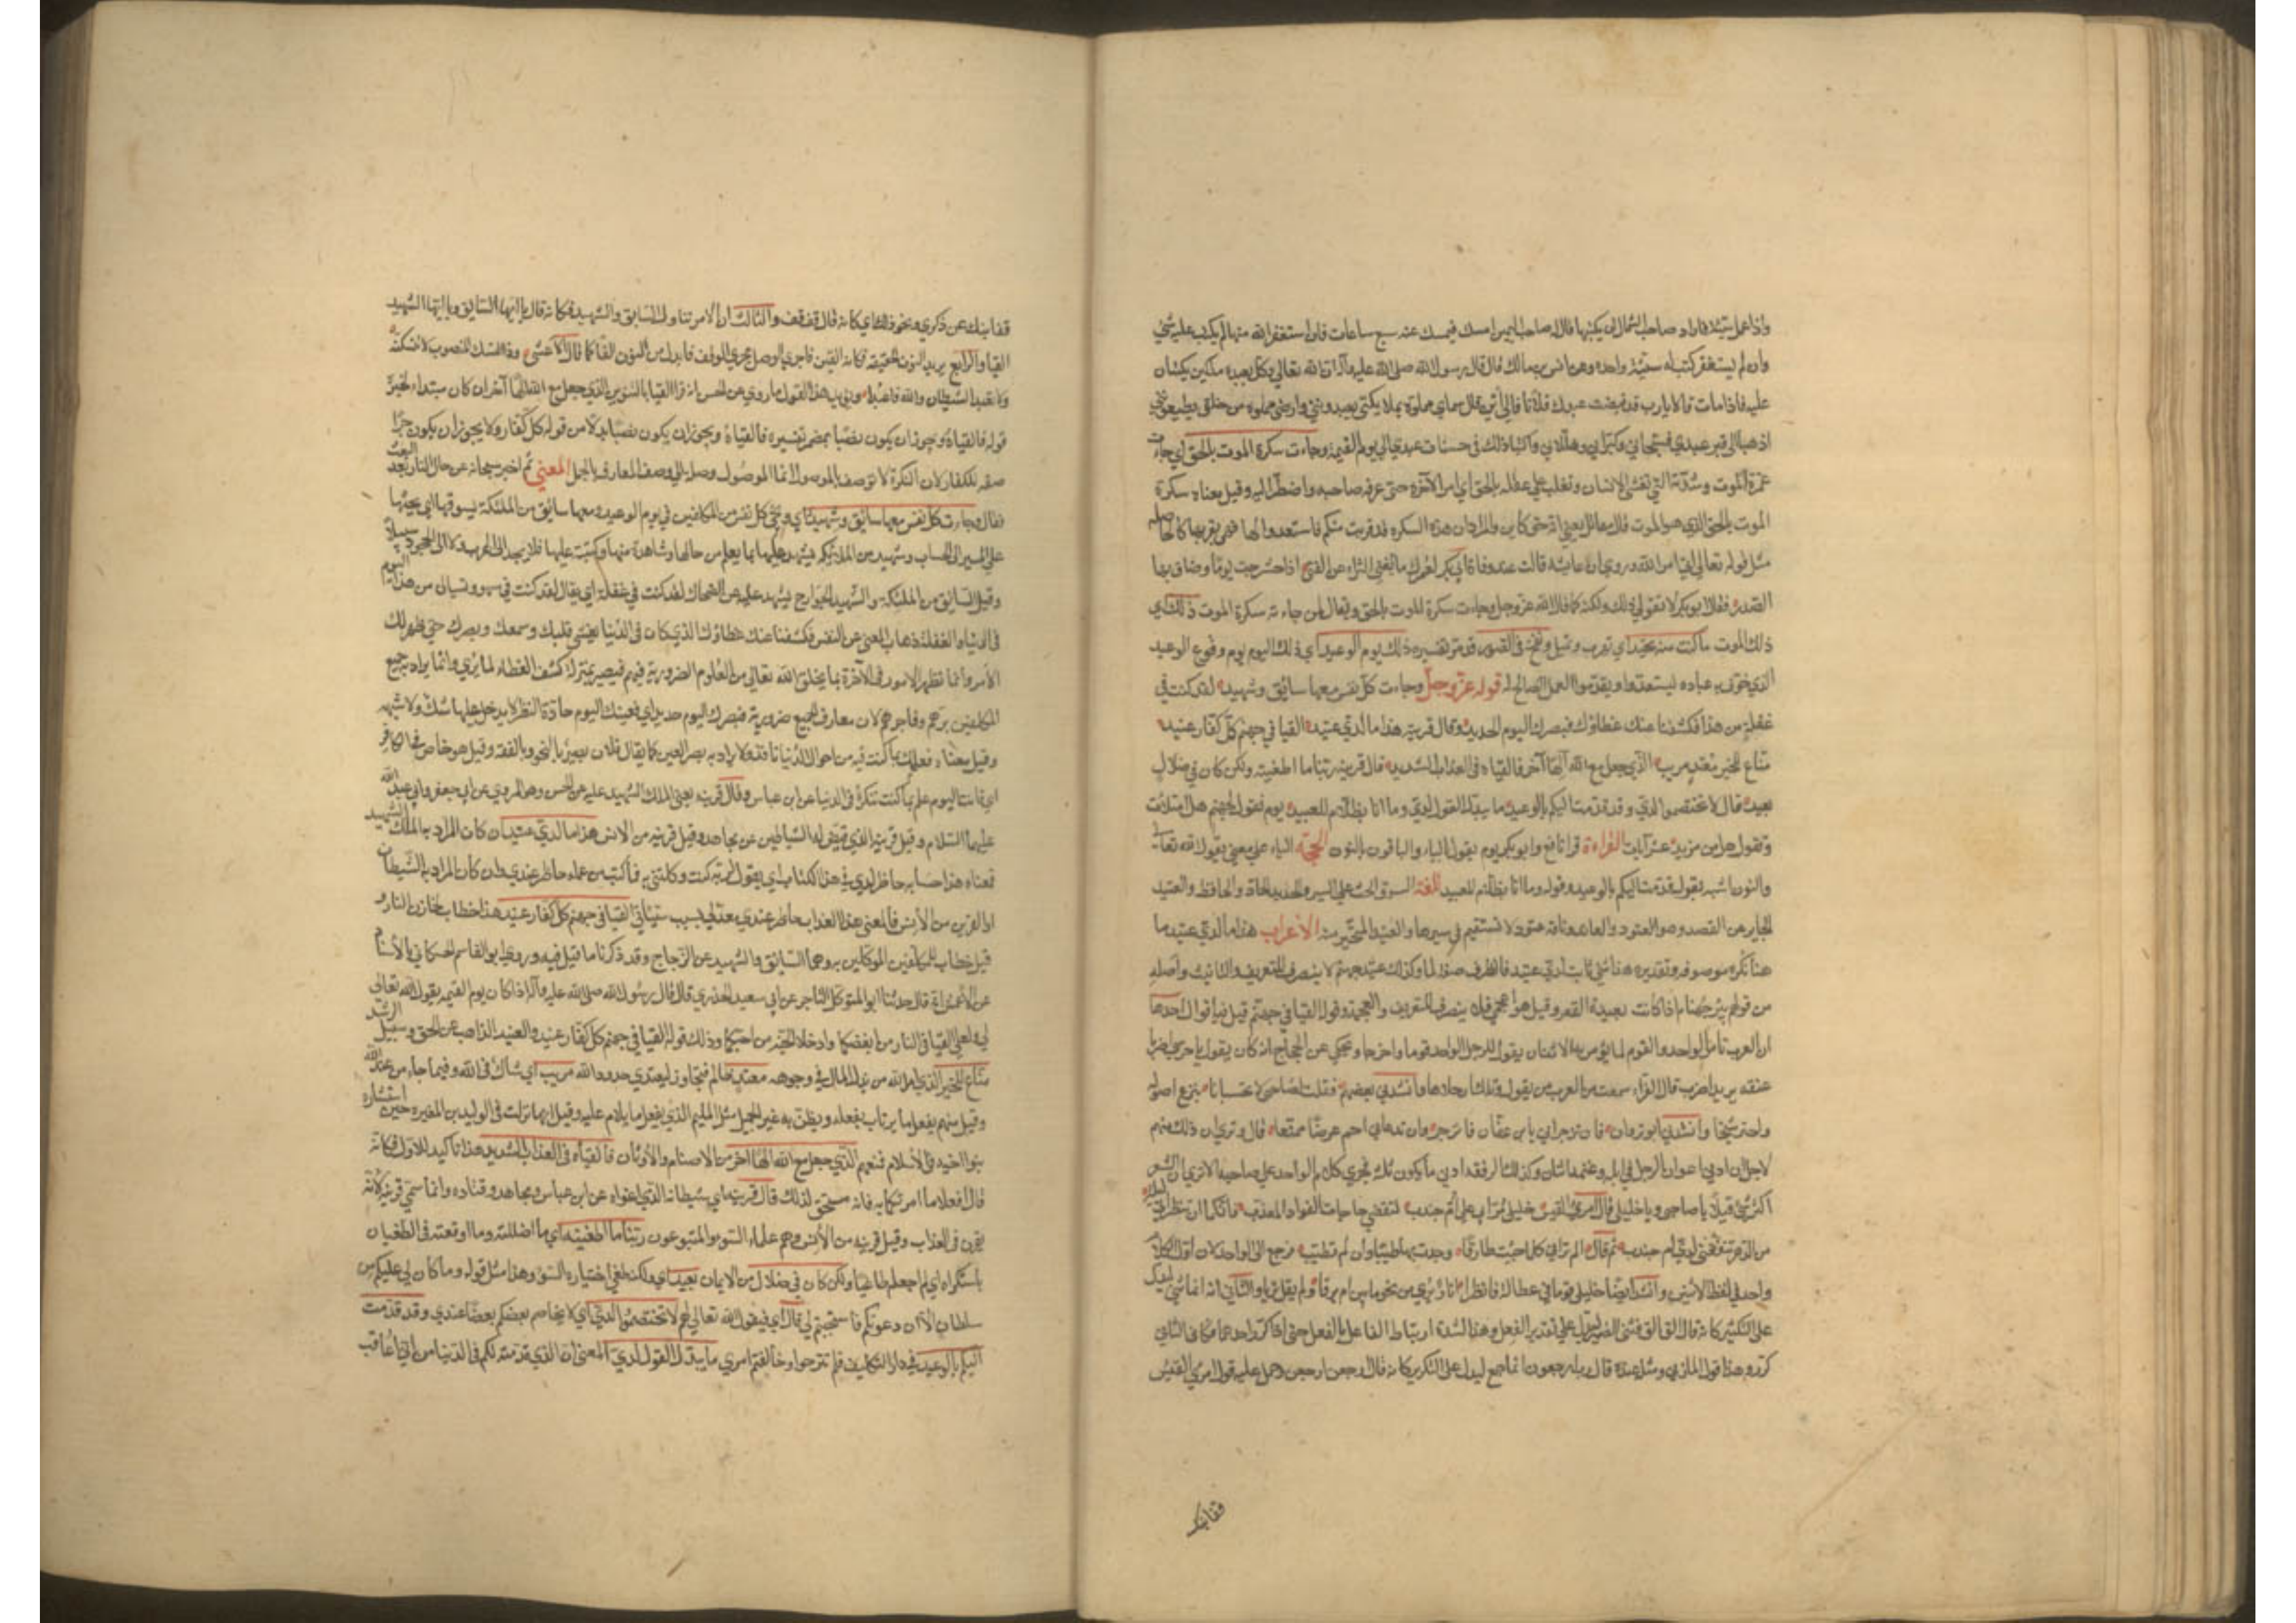 واذا عمل سيئة فاراد صاحب الشمال ان يكتبها قال له صاحب اليمين امسك فيمسك عنه سبع ساعات فان استغفر الله منها لم يكتب عليه شئ
وان لم يستغفر كتب له سيئة واحدة وعن انس بن مالك قال قال رسول الله صلى الله عليه وآله ان الله تعالى وكل بعبده ملكين يكتبان
عليه فاذا مات قالا يارب قد قبضت عبدك فلانا فالى اين قال سمائي مملوة بملائكتي يعبدونني وارضي مملوة من خلقي يطيعونني
اذهبا الى قبر عبدي فسبحاني وكبراني وهللاني واكتبا ذلك في حسنات عبدي الى يوم القيمة وجاءت سكرة الموت بالحق اي جاءت
غمرة الموت وشدته التي تغشى الانسان وتغلب على عقله بالحق اي امر الآخرة حتى عرفه صاحبه واضطر اليه وقيل معناه سكرة
الموت بالحق الذي هو الموت قال مقاتل يعني انه حق كاين والمراد ان هذه السكره قد قربت منكم فاستعدوا لها فهي لقربها كالحاصلة
مثل قوله تعالى اتى امر الله وروي ان عايشة قالت عند وفاة ابي بكر لعمرك ما يغني الثراء عن الفتى اذا حشرجت يوما وضاق بها
الصدر فقال ابو بكر لا تقولي ذلك ولكنه كما قال الله عز وجل وجاءت سكرة الموت بالحق ويقال لمن جاءته سكرة الموت ذلك اي
ذلك الموت ما كنت منه تحيد اي تهرب وتميل ونفخ في الصور قد مر تفسيره ذلك يوم الوعيد اي ذلك اليوم يوم وقوع الوعيد
الذي خوف به عباده ليستعدوا ويقدموا العمل الصالح له قوله عز وجل وجاءت كل نفس معها سائق وشهيد لقد كنت في
غفلة من هذا فكشفنا عنك غطاؤك فبصرك اليوم لحديد وقال قرينه هذا ما لدي عتيد القيا في جهنم كل كفار عنيد
مناع للخير معتد مريب الذي جعل مع الله الها آخر فالقياه في العذاب الشديد قال قرينه ربنا ما اطغيته ولكن كان في ضلال
بعيد قال لا تختصموا لدي وقد قدمت اليكم بالوعيد ما يبدل القول لدي وما انا بظلام للعبيد يوم نقول لجهنم هل امتلات
وتقول هل من مزيد عشر آيات القراءة قرا نافع وابو بكر يوم يقول بالياء والباقون بالنون الحجة الياء على معنى يقول الله تعالى
والنون اشبه بقوله قدمت اليكم بالوعيد وقوله وما انا بظلام للعبيد اللغة السوق الحث على السير والحديد الحاد والحافظ والعتيد
الجاير عن القصد وهو العنود والعاند وناقة عنود لا تستقيم في سيرها والعنيد المتحير منه الاعراب هذا ما لدي عتيد ما
هنا نكره موصوفه وتقديره هذا شئ ثابت لدي عتيد فالظرف صفة لما وكذلك عتيد جهنم لا ينصرف للتعريف والتانيث واصله
من قولهم بئر جهنام اذا كانت بعيدة القعر وقيل هو اعجمي فلا ينصرف للتعريف والعجمة وقوله القيا في جهنم قيل فيه اقوال احدها
ان العرب تامر الواحد والقوم بما يؤمر به الاثنان يقول للرجل الواحد قوما واخرجا ويحكي عن الحجاج انه كان يقول يا حرسي اضربا
عنقه يريد اضرب قال الفراء سمعت من العرب من يقول ويلك ارحلاها وانشدني بعضهم فقلت لصاحبي لا تحبسانا بنزع اصوله
واجتز شيحا وانشدني ابو ثروان فان تزجراني يا بن عفان انزجر وان تدعاني احم عرضا ممنعا قال ونرى ان ذلك منهم
لاجل ان ادنى اعوان الرجل في ابله وغنمه اثنان وكذلك الرفقة ادنى ما يكون ثلثة فجرى كلام الواحد على صاحبه الا ترى ان الشعراء
اكثر شئ قيلا يا صاحبي ويا خليلي قال امرئ القيس خليلي مرا بي على ام جندب لنقضي حاجات الفواد المعذب فانكما ان تنظراني ليلة
من الدهر تنفعني لدى ام جندب ثم قال الم تراني كلما جئت طارقا وجدت بها طيبا وان لم تطيب فرجع الى الواحد لان اول الكلام
واحد في لفظ الاثنين وانشد ايضا خليلي قوما في عطالة فانظرا انارا ترى من نحو ما بين ام برقا ولم يقل تريا والثاني انه انما ثنى ليدل
على التكثير كانه قال الق الق فثنى الضمير ليدل على تكرير الفعل وهذا لشدة ارتباط الفاعل بالفعل حتى اذا كرر احدهما فكان الثاني
كرر وهذا قول المازني ومثله عنده قال رب ارجعون انما جمع ليدل على التكرير كانه قال ارجعن ارجعن وحمل عليه قول امرئ القيس
قفا نبك
قفا نبك من ذكرى ونحو ذلك اي كانه قال قف قف والثالث ان الامر تناول السايق والشهيد فكانه قال يا ايها السايق ويا ايها الشهيد
القيا والرابع يريد النون الخفيفة فكانه القين فاجرى الوصل مجرى الوقف فابدل من النون الفا كما قال الاعشى وذا النسك المنصوب لا تنسكنه
ولا تعبد الشيطان والله فاعبدا ويؤيد هذا القول ما روي عن الحسن انه قرا القيا بالتنوين الذي جعل مع الله الها آخر ان كان مبتداء فخبره
قوله فالقياه ويجوز ان يكون نصبا بمضمر تفسيره فالقياه ويجوز ان يكون نصبا بدلا من قوله كل كفار ولا يجوز ان يكون جرا
صفة للكفار لان النكرة لا توصف بالموصول انما الموصول وصلة الى وصف المعارف بالجمل المعنى ثم اخبر سبحانه عن حال النار بعد البعث
فقال وجاءت كل نفس معها سائق وشهيد اي وتجئ كل نفس من المكلفين في يوم الوعيد ومعها سائق من الملئكة يسوقها اي يحثها
على السير الى الحساب وشهيد من الملئكة يشهد عليها بما يعلم من حالها وشاهده منها وكتبه عليها فلا يجد الى الهرب ولا الى الجحود سبيلا
وقيل السائق من الملئكة والشهيد الجوارح يشهد عليه عن الضحاك لقد كنت في غفلة اي يقال لقد كنت في سهو ونسيان من هذا اليوم
في الدنيا والغفلة ذهاب المعنى عن النفس فكشفنا عنك غطاؤك الذي كان في الدنيا يغشى قلبك وسمعك وبصرك حتى ظهر لك
الامر وانما تظهر الامور في الآخرة بما يخلق الله تعالى من العلوم الضرورية فيهم فيصير بمنزلة كشف الغطاء لما يرى وانما يراد به جميع
المكلفين برهم وفاجرهم لان معارف الجميع ضرورية فبصرك اليوم حديد اي فعينك اليوم حادة النظر لا يدخل عليها شك ولا شبهة
وقيل معناه فعلمك بما كنت فيه من احوال الدنيا نافذ ولا يراد به بصر العين كما يقال فلان بصير بالنحو وبالفقه وقيل هو خاص في الكافر
اي فانت اليوم عالم بما كنت تنكره في الدنيا عن ابن عباس وقال قرينه يعني الملك الشهيد عليه عن الحسن وهو المروي عن ابي جعفر وابي عبد الله
عليهما السلام وقيل قرينه الذي قيض له الشياطين عن مجاهد وقيل قرينه من الانس هذا ما لدي عتيد ان كان المراد به الملك الشهيد
فمعناه هذا حسابه حاضر لدي في هذا الكتاب اي يقول لربه كنت وكلتني به فاكتب من عمله حاضر عندي وان كان المراد به الشيطان
او القرين من الانس فالمعنى هذا العذاب حاضر عندي معد لي بسبب سيئاتي القيا في جهنم كل كفار عنيد هذا خطاب لخازن النار و
قيل خطاب للملكين الموكلين به وهما السائق والشهيد عن الزجاج وقد ذكرنا ما قيل فيه وروى ابو القاسم الحسكاني بالاسناد
عن الاعمش انه قال حدثنا ابو المتوكل التاجر عن ابي سعيد الخدري قال قال رسول الله صلى الله عليه وآله اذا كان يوم القيمة يقول الله تعالى
لي ولعلي القيا في النار من ابغضكما وادخلا الجنة من احبكما وذلك قوله القيا في جهنم كل كفار عنيد والعنيد الذاهب عن الحق وسبيل الرشد
مناع للخير الذي امر الله من بذل المال في وجوهه معتد ظالم متجاوز يتعدى حدود الله مريب اي شاك في الله وفيما جاء من عند الله
وقيل متهم يفعل ما يرتاب بفعله ويظن به غير الجميل مثل المليم الذي يفعل ما يلام عليه وقيل انها نزلت في الوليد بن المغيره حين استشاره
بنو اخيه في الاسلام فمنعهم الذي جعل مع الله الها آخر من الاصنام والاوثان فالقياه في العذاب الشديد هذا تاكيد للاول فكانه
قال افعلا ما امرتكما به فانه مستحق لذلك قال قرينه اي شيطانه الذي اغواه عن ابن عباس ومجاهد وقتاده وانما سمي قرينه لانه
يقرن في العذاب وقيل قرينه من الانس وهم علماء السوء والمتبوعون ربنا ما اطغيته اي ما اضللته وما اوقعته في الطغيان
باستكراه اي لم اجعله طاغيا ولكن كان في ضلال من الايمان بعيد اي ولكنه طغى باختياره السوء وهذا مثل قوله وما كان لي عليكم من
سلطان الا ان دعوتكم فاستجبتم لي قال اي فيقول الله تعالى لهم لا تختصموا لدي اي لا يخاصم بعضكم بعضا عندي وقد قدمت
اليكم بالوعيد في دار التكليف فلم تنزجروا وخالفتم امري ما يبدل القول لدي المعنى ان الذي قدمته لكم في الدنيا من اني اعاقب